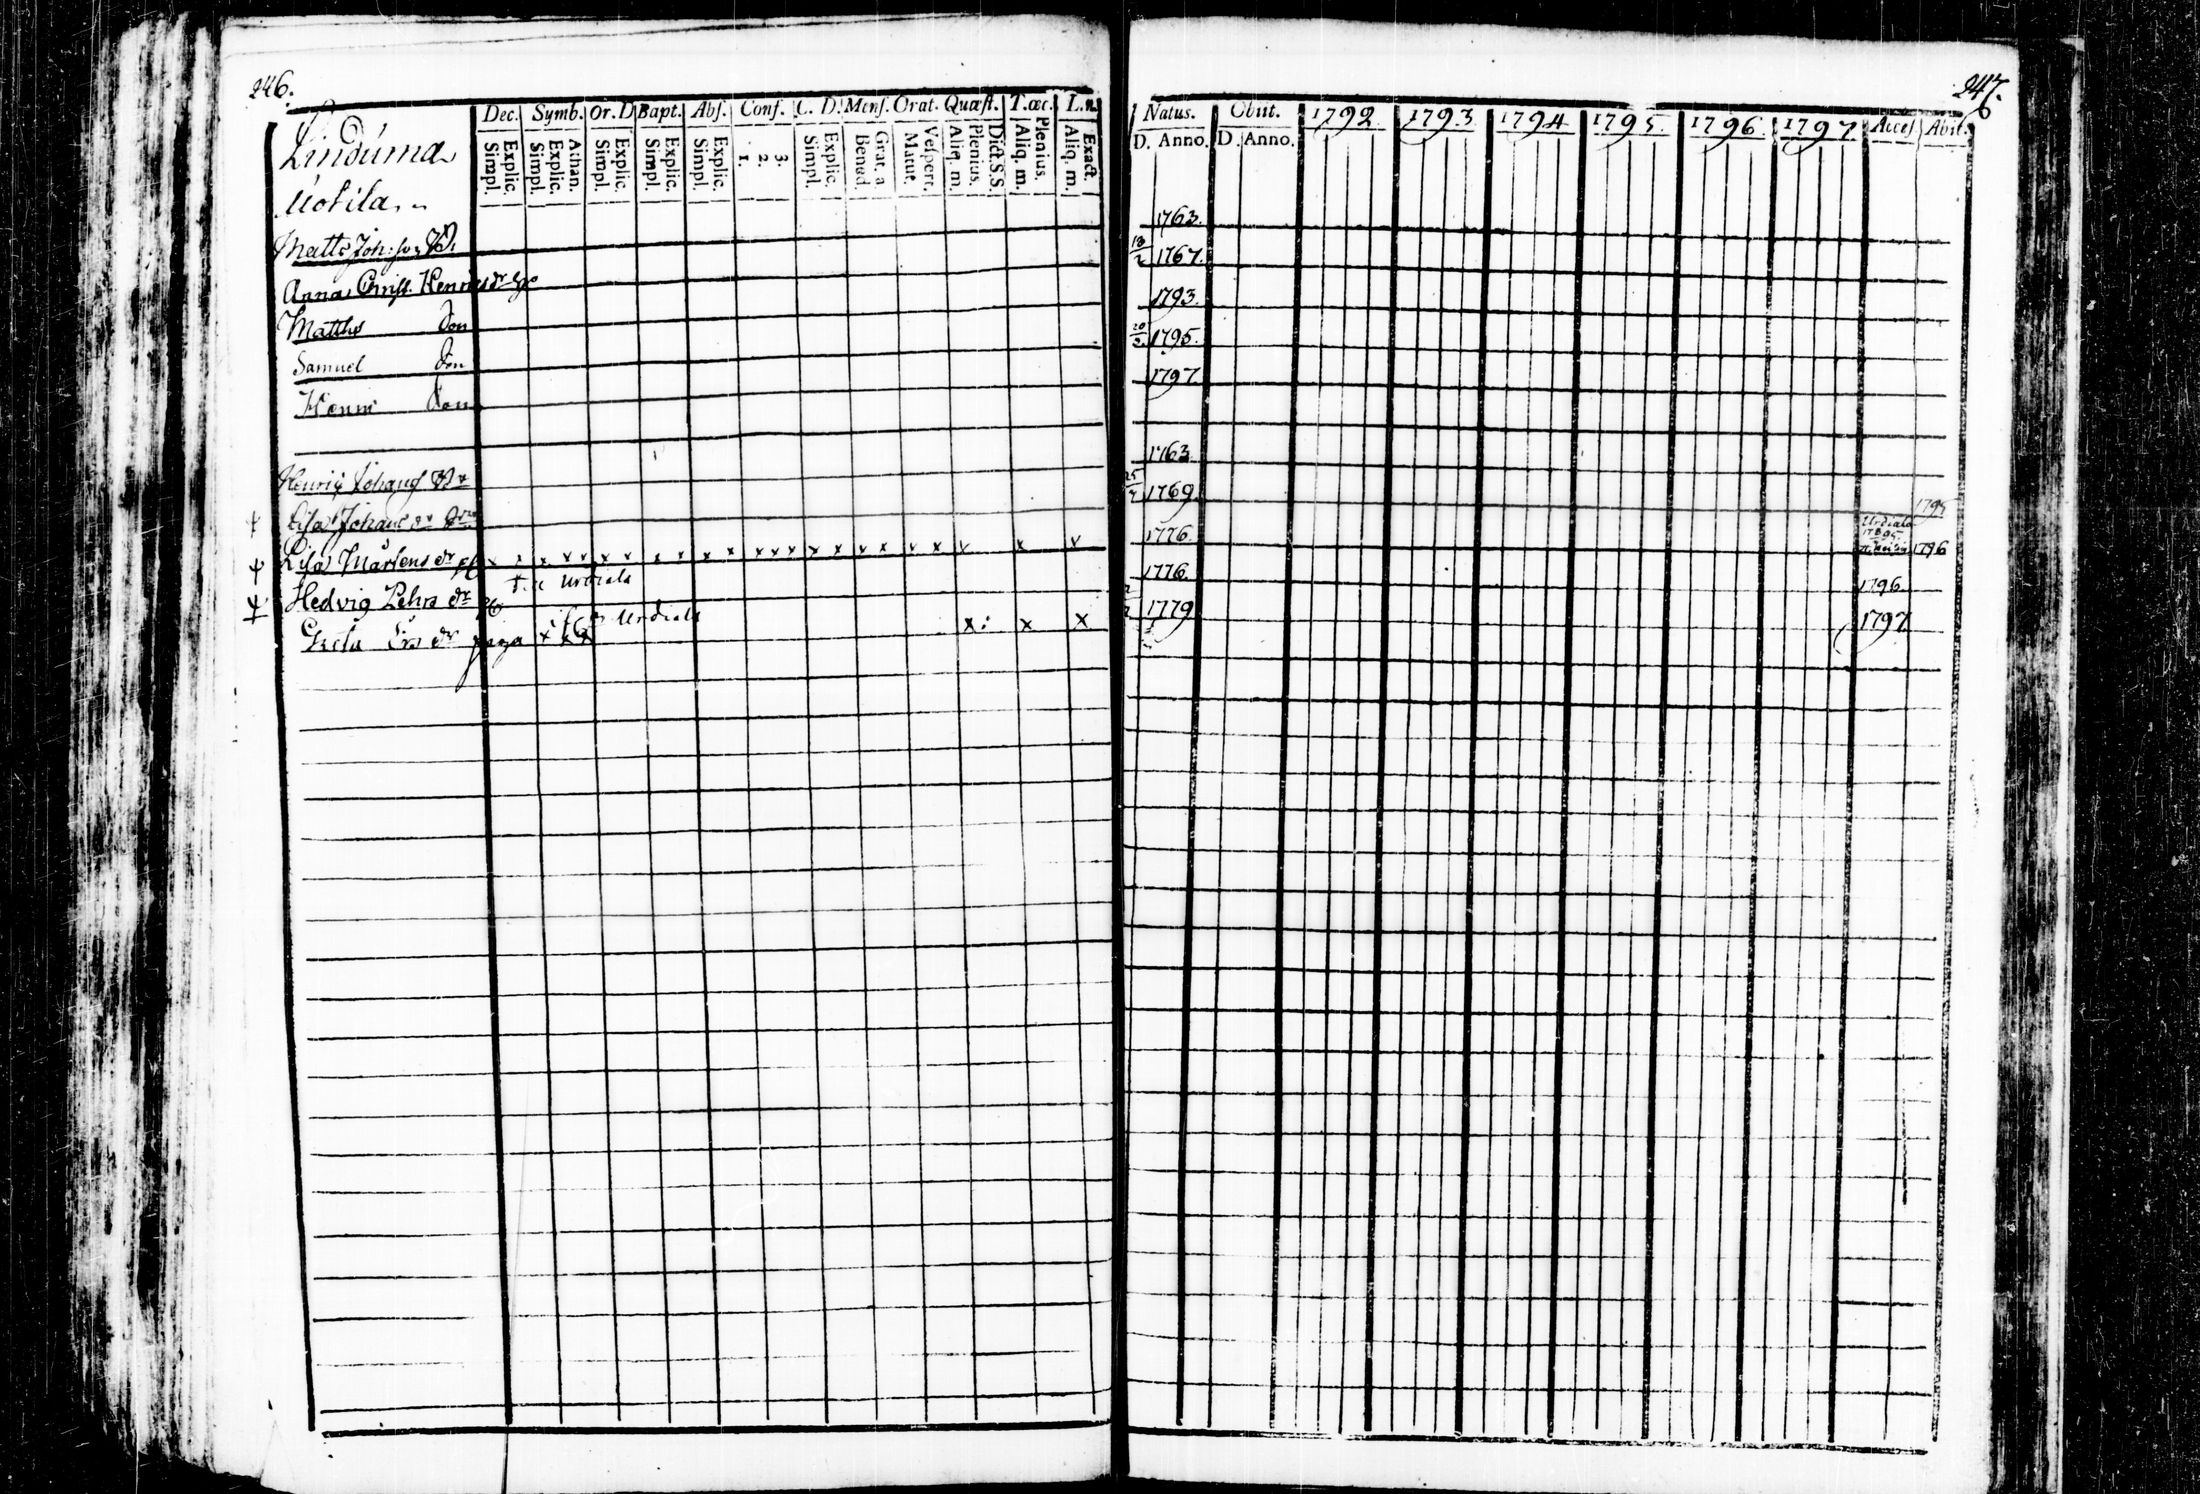 246.
Dec. Symb. Or. D Bapt. Abs. Conf. C. D. Mens. Orat. Quæst. T. œc. L. n.
Explic. Simpl. Athan. Explic. Simpl. Explic. Simpl. Explic. Simpl. Explic. Simpl. 3. 2. 1. Explic. Simpl. Grat. a. Bened. Vespert. Matut. Dict. S.S. Plenius. Aliq. m. Plenius. Aliq. m. Exact. Aliq. m.
Linduma
Uotila
Matts Joh:son
Anna Christ. Henricsdr
Matths Son
Samuel Son
Henric Son
Henric Johans
Lisa Johans dr
Lisa Mårtens dr x x x x x x x x x x x x x x x x x x x v x v
Hedvig Lehrs dr till Urdiala
Greta dr piga x x x Urdiala x: x x
247.
Natus. Obiit. 1792. 1793 1794 1795. 1796. 1797 Access Abit.
D. Anno. D. Anno.
1763.
18/2 1767.
1793.
20/2 1795.
1797.
1763.
25/7 1769. 1795
1776. Urdiala 1795 1796
1776. 1796.
1779 1797